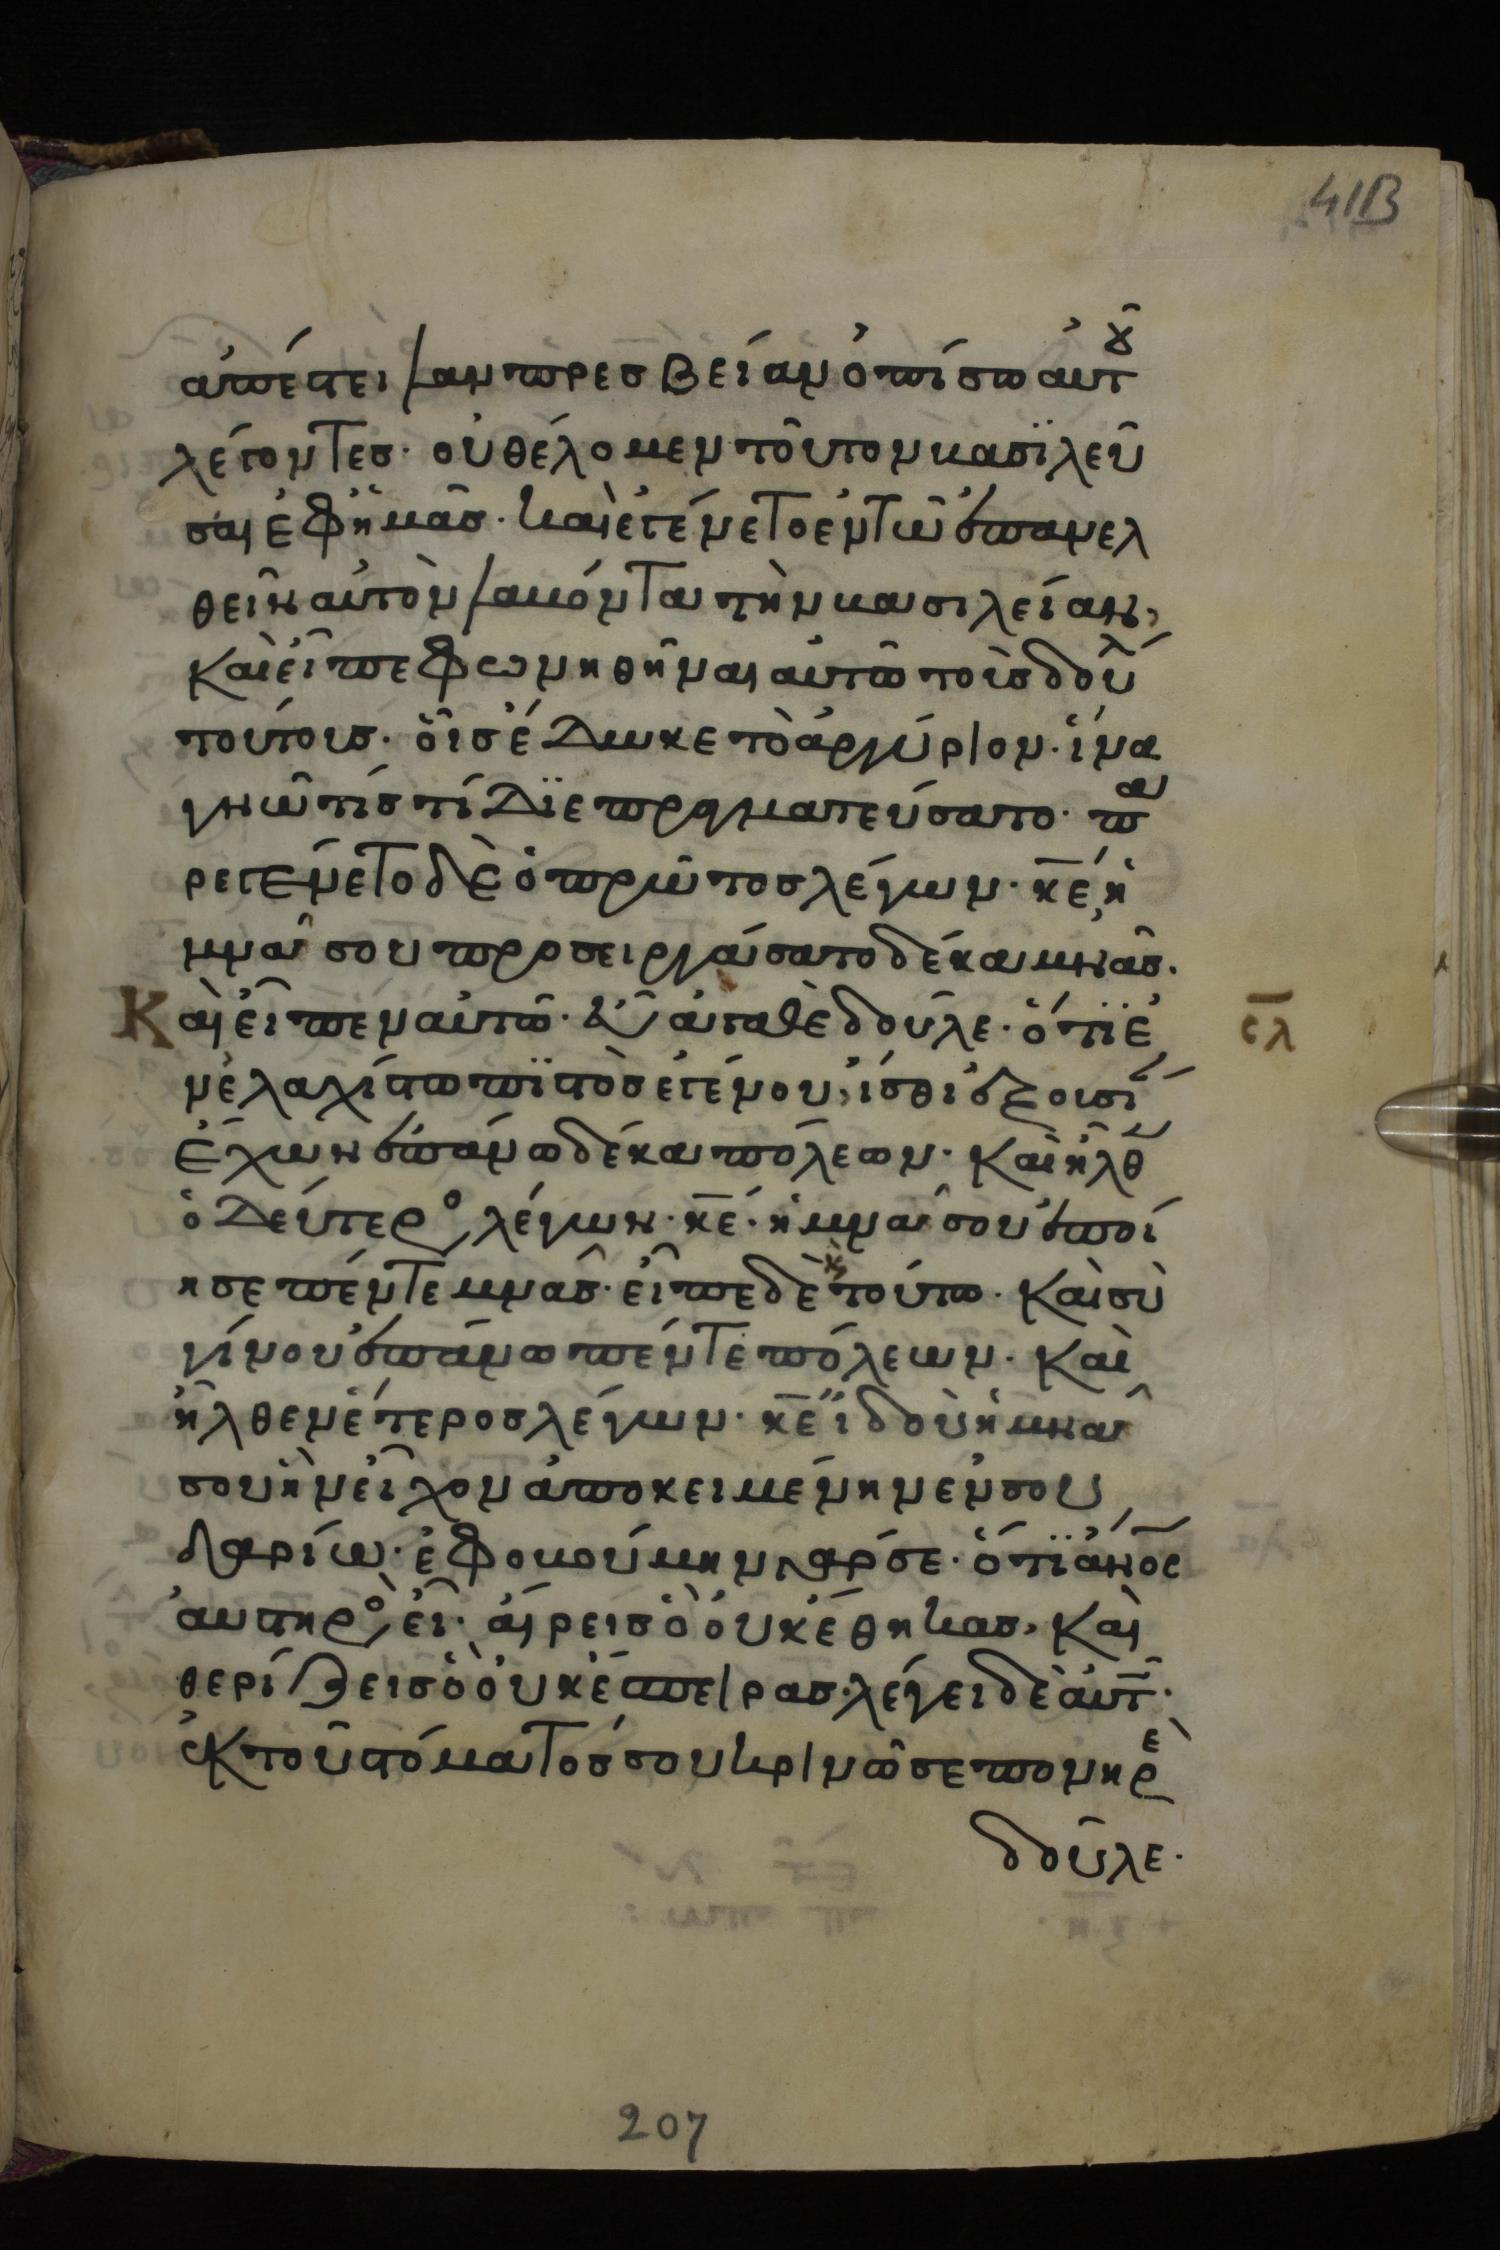 41B
ἀπέστειλαν πρεσβείαν ὀπίσω αὐτοῦ
λέγοντες· οὐ θέλομεν τοῦτον βασϊλεῦ
σαι ἐφ' ἡμᾶς· καὶ ἐγένετο ἐν τῶ ἐπανελ
θεῖν αὐτὸν λαβόντα τὴν βασιλείαν,
καὶ εἶπε φωνηθῆναι αὐτῶ τοὺς δού
τούτους· οἷς ἔδωκε τὸ ἀργύριον· ἵνα
γνῶ τίς τί δϊεπραγματεύσατο· πα
ρεγένετο δὲ ὁ πρῶτος λέγων· κ̅ε̅ ἡ
μνᾶ σου προσειργάσατο δέκα μνᾶς.
Καὶ εἶπεν αὐτῶ· εὖ ἀγαθὲ δοῦλε· ὅτϊ ἐ
ν ἐλαχίστω πϊστὸς ἐγένου, ἴσθι ἐξουσί
ἔχων ἐπάνω δέκα πόλεων· καὶ ἦλθ
σ̅λ̅
ὁ δεύτερος λέγων· κ̅ε̅· ἡ μνᾶ σου ἐποί
ησε πέντε μνᾶς· εἶπε δὲ κ̀ τούτω· καὶ σὺ
γίνου ἐπάνω πέντε πόλεων· καὶ
ἦλθεν ἕτερος λέγων· κ̅ε̅ ἰδοὺ ἡ μνᾶ
σου ἣν εἶχον ἀποκειμένην ἐν σου
δαρίω· ἐφοβούμην γάρ σε· ὅτϊ ἄν̅ο̅ς̅
αὐστηρὸς εἶ· αἴρεις ὃ οὐκ ἔθηκας, καὶ
θερίζεις ὃ οὐκ ἔσπειρας· λέγει δὲ αὐτ·
ἐκ τοῦ στόματός σου κρινῶ σε πονηρὲ
δοῦλε·
207